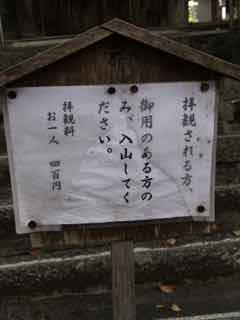 拝観される方、
御用のある方の
み、入山してく
ださい。
拝観料
お一人 四百円